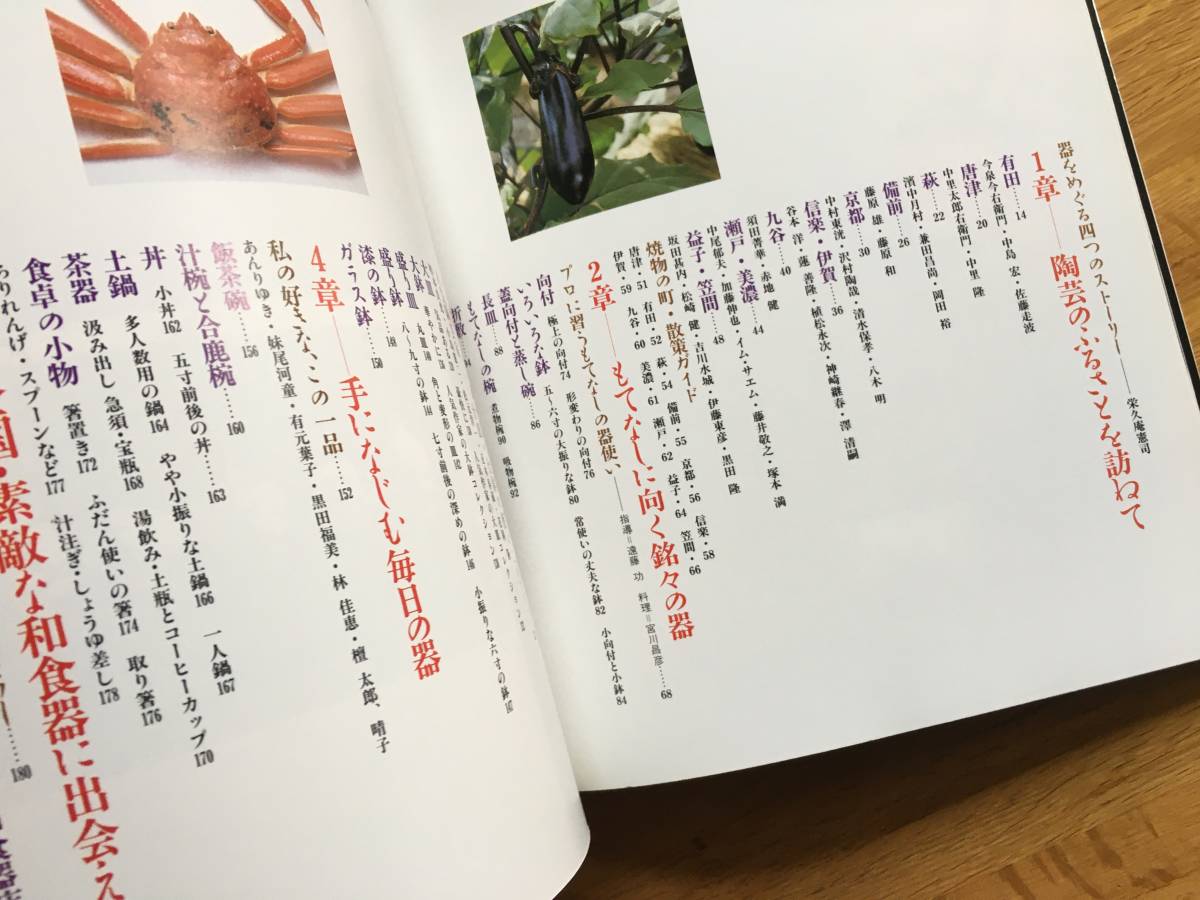 器をめぐる四つのストーリー――栄久庵憲司
1章――陶芸のふるさとを訪ねて
有田……14
今泉今右衛門・中島 宏・佐藤走波
唐津……20
中里太郎右衛門・中里 隆
萩……22
濱中月村・兼田昌尚・岡田 裕
備前……26
藤原 雄・藤原 和
京都……30
中村東洸・沢村陶哉・清水保孝・八木 明
信楽・伊賀……36
谷本 洋・蓮 善隆・植松永次・神崎継春・澤 清嗣
九谷……40
須田菁華・赤地 健
瀬戸・美濃……44
中尾郁夫・加藤伸也・イム・サエム・藤井敬之・塚本 満
益子・笠間……48
坂田甚内・松崎 健・吉川水城・伊藤東彦・黒田 隆
焼物の町・散策ガイド
唐津・51 有田・52 萩・54 備前・55 京都・56 信楽・58
伊賀・59 九谷・60 美濃・61 瀬戸・62 益子・64 笠間・66
2章――もてなしに向く銘々の器
プロに習うもてなしの器使い――指導＝遠藤 功 料理＝宮川昌彦……68
向付 極上の向付74 形変わりの向付76
いろいろな鉢 五〜六寸の大振りな鉢80 常使いの丈夫な鉢82 小向付と小鉢84
蓋向付と蒸し碗……86
長皿……88
もてなしの椀 煮物椀90 吸物椀92
折敷
大皿
大鉢
盛り皿
盛り鉢 八〜九寸の鉢144 七寸前後の深めの鉢146 小振りな六寸の鉢147
漆の鉢……148
ガラス鉢……150
4章――手になじむ毎日の器
私の好きな、この一品……152
あんりゆき・妹尾河童・有元葉子・黒田福美・林 佳恵・檀 太郎、晴子
飯茶碗……156
汁椀と合鹿椀……160
丼 小丼162 五寸前後の丼……163
土鍋 多人数用の鍋164 やや小振りな土鍋166 一人鍋167
茶器 汲み出し 急須・宝瓶168 湯飲み・土瓶とコーヒーカップ170
食卓の小物 箸置き172 ふだん使いの箸174 取り箸176
ちりれんげ・スプーンなど177 汁注ぎ・しょうゆ差し178
国・素敵な和食器に出会え
……180